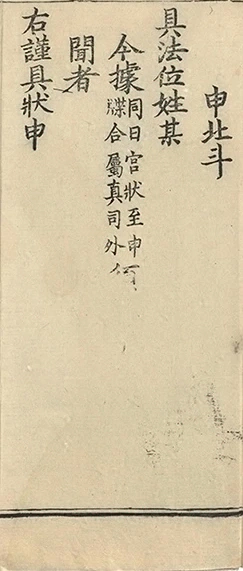 申北斗
具法位姓某
今據同日宫狀至申
牒合屬真司外
聞者
右謹具狀申